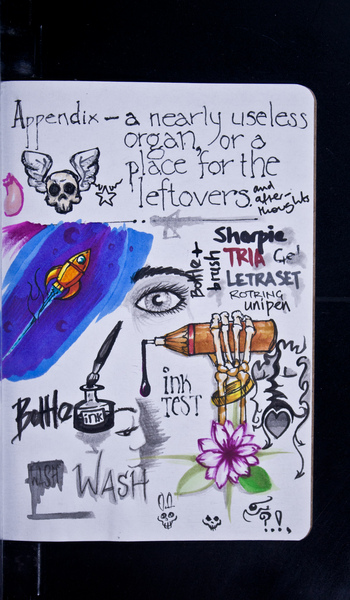 Appendix – a nearly useless
organ, or a
place for the
leftovers.
and
after-
thoughts
Sharpie
TRIA Gel
LETRASET
ROTRING
unipen
Bottle +
brush
ink
TEST
Bottle
ink
WASH
WASH
?!.